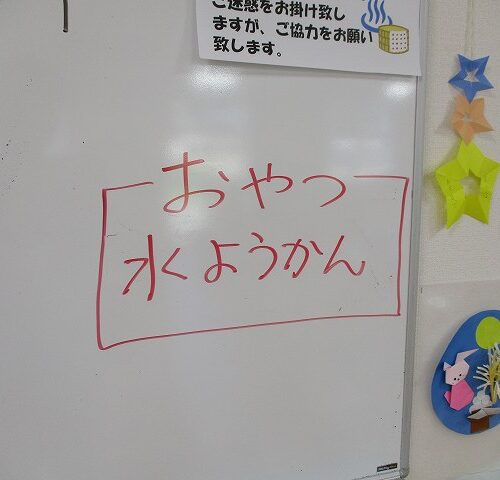 ご迷惑をお掛け致し
ますが、ご協力をお願い
致します。
おやつ
水ようかん